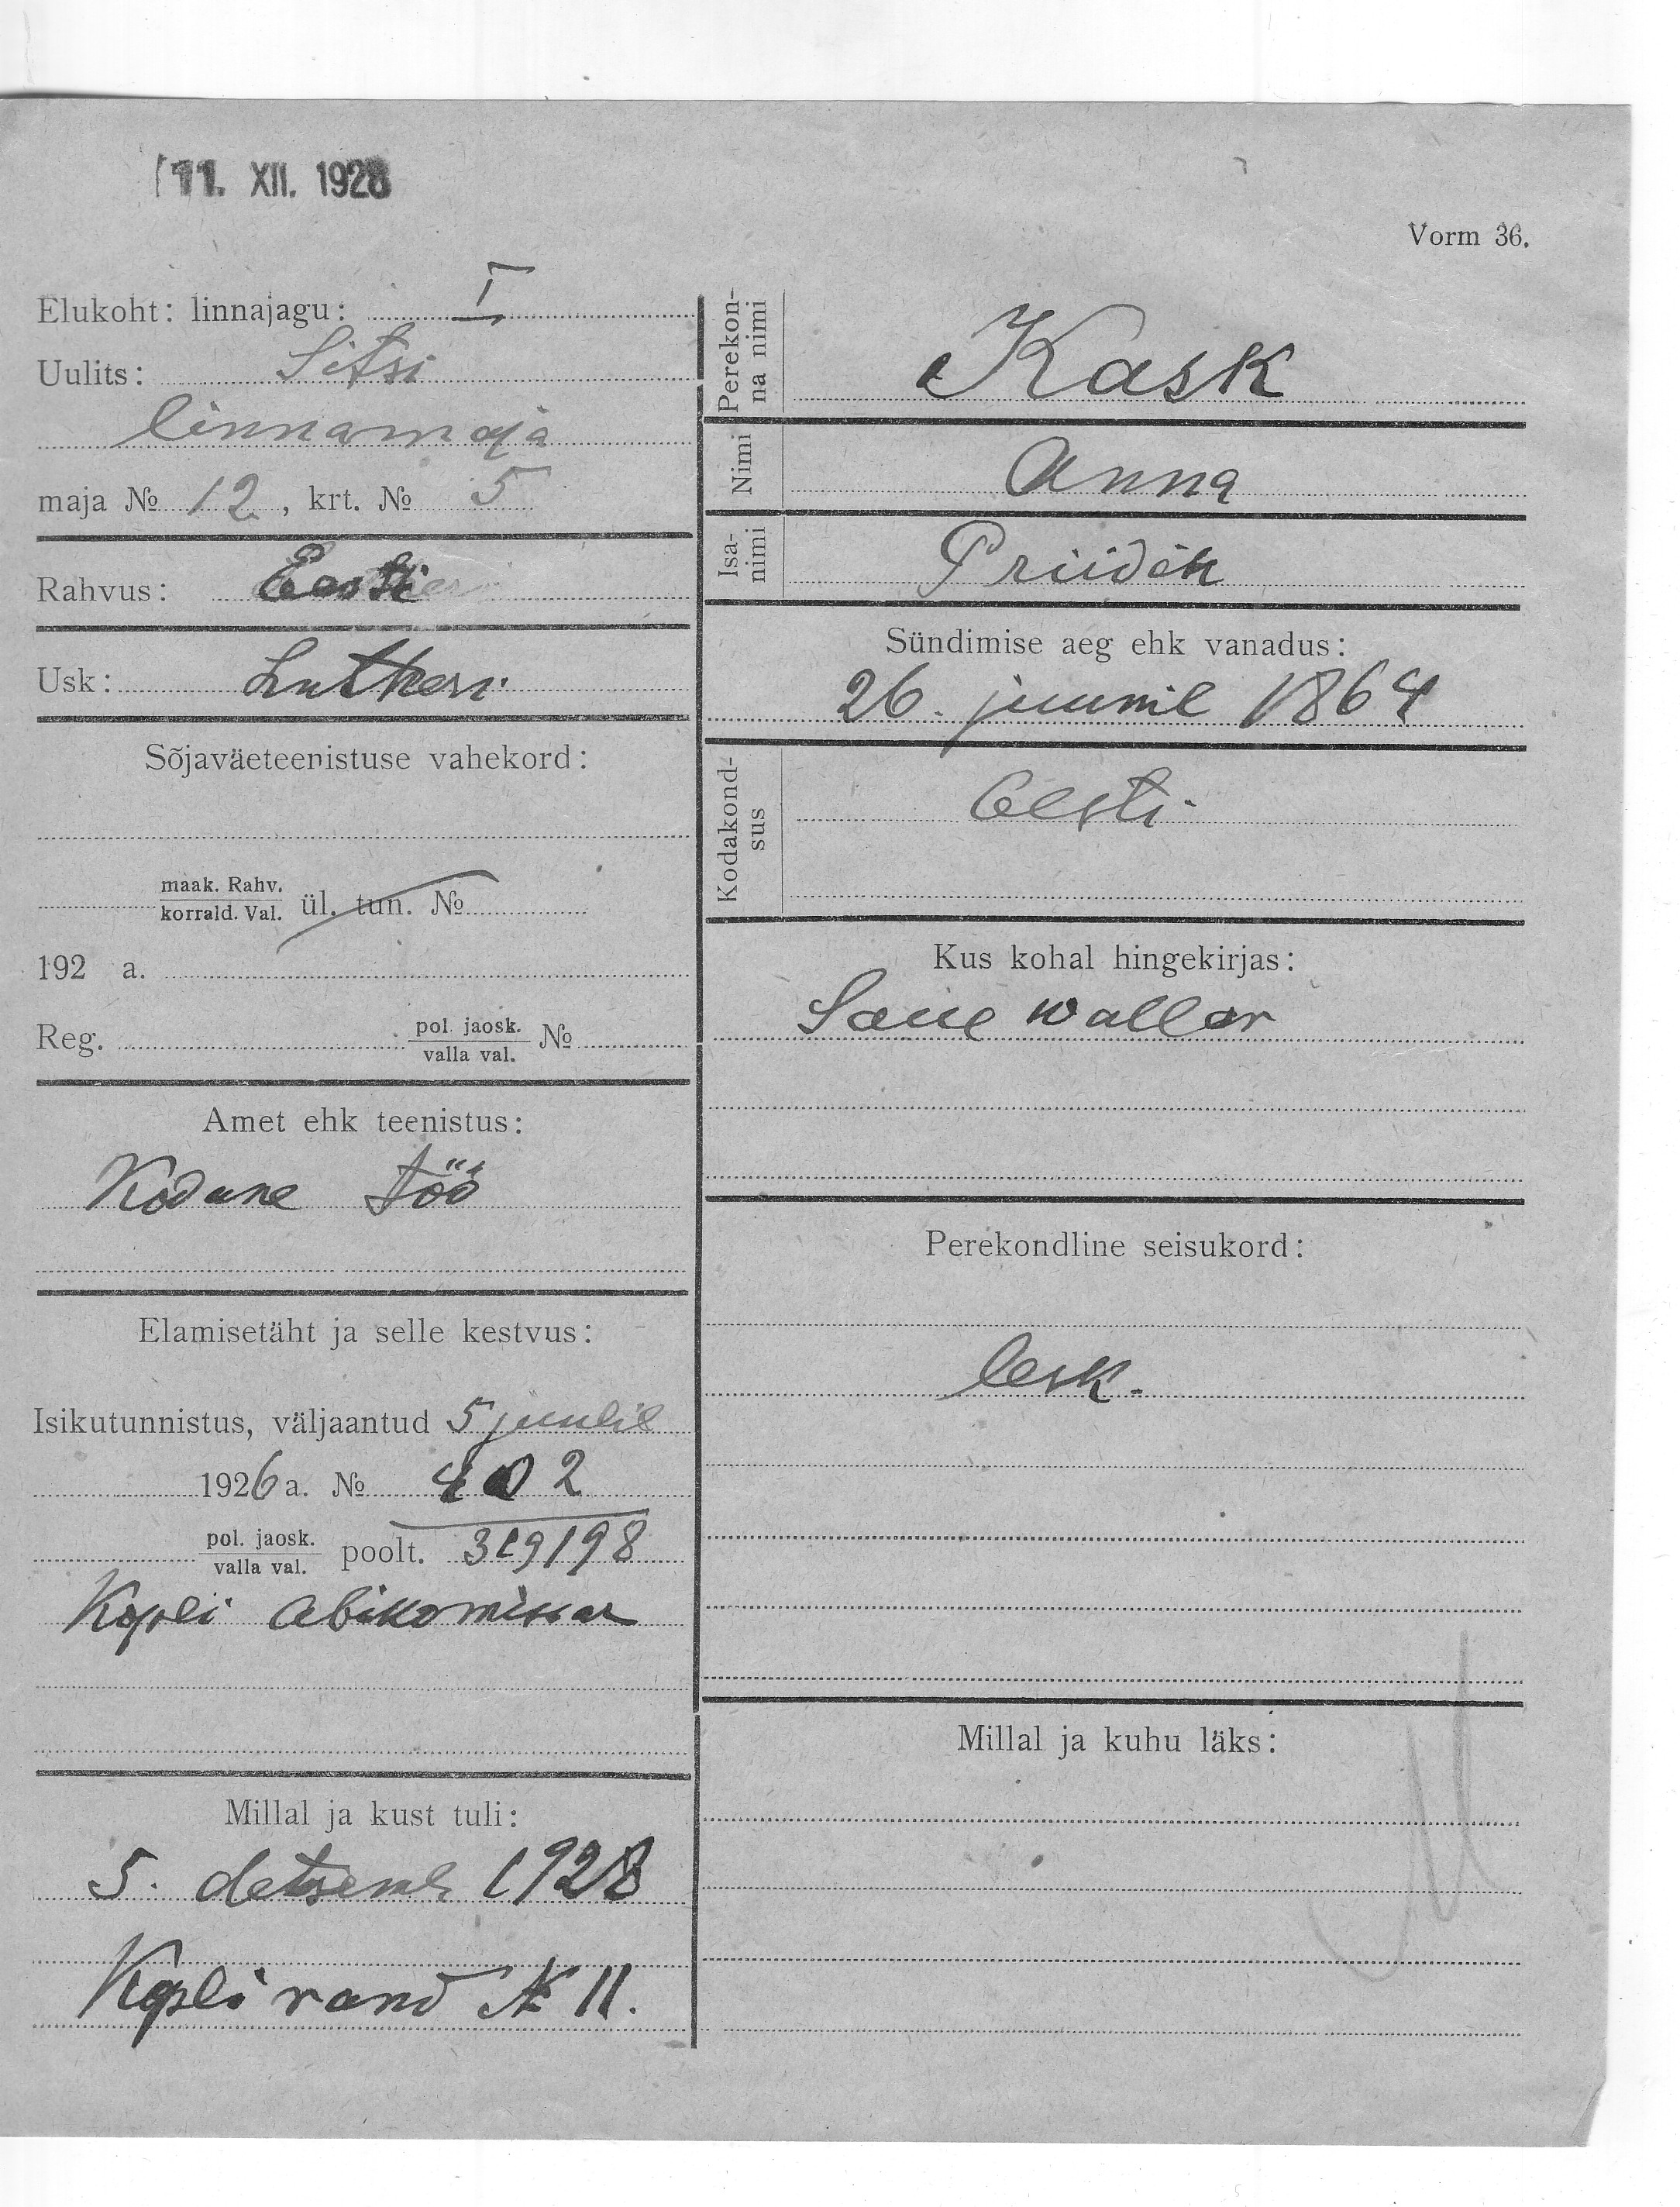 11. XII. 1928
Vorm 36.
Elukoht: linnajagu: I
Uulits: Sitsi
linnamaja
maja № 12, krt. № 5
Rahvus: Eesti
Usk: Lutheri
Sõjaväeteenistuse vahekord:
maak. Rahv.
korrald. Val. ül. tun. №
192 a.
Reg. pol. jaosk.
valla val. №
Amet ehk teenistus:
Kodune töö
Elamisetäht ja selle kestvus:
Isikutunnistus, väljaantud 5 juulil
1926 a. № 402
pol. jaosk.
valla val. poolt. 319198
Kopli abikomissar
Millal ja kust tuli:
5. detsemb 1928
Kopli rand № 11.
Perekon-
na nimi Kask
Nimi Anna
Isa-
nimi Priidik
Sündimise aeg ehk vanadus:
26. juunil 1864
Kodakond-
sus Eesti.
Kus kohal hingekirjas:
Saue wallas
Perekondline seisukord:
lesk.
Millal ja kuhu läks: